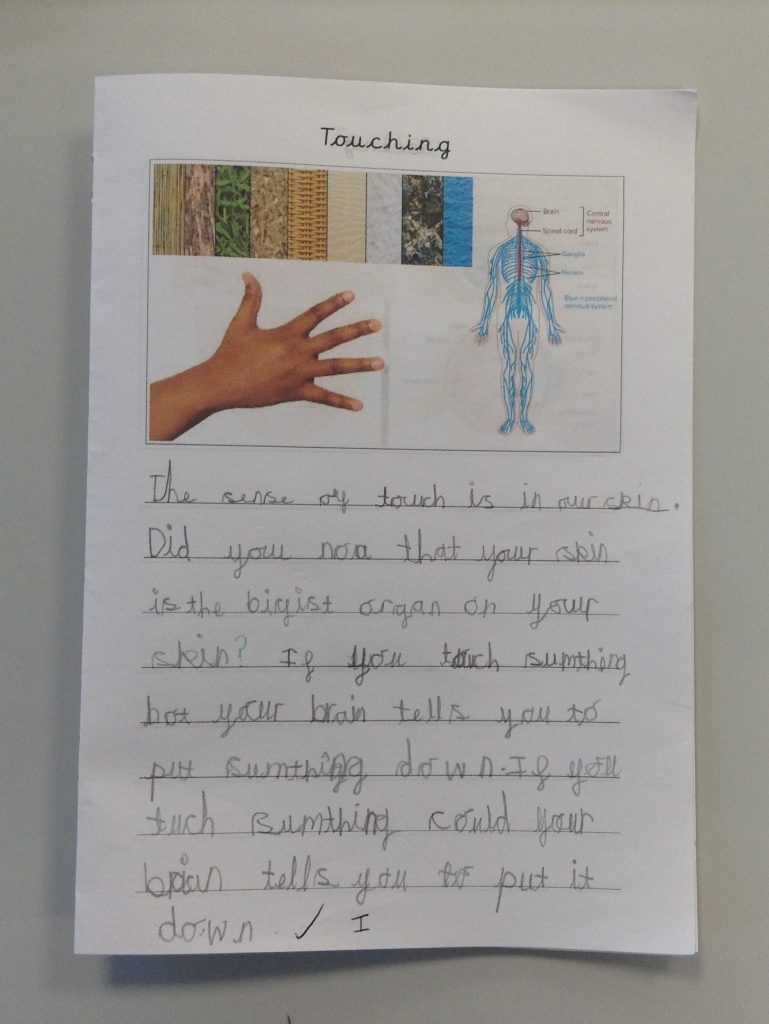 Touching
Brain
Spinal cord
Central nervous system
Ganglia
Nerves
Blue = peripheral nervous system
The sense of touch is in our skin.
Did you noa that your skin
is the bigist organ on your
skin? If you tuch sumthing
hot your brain tells you to
put sumthing down. If you
tuch sumthing could your
brain tells you to put it
down. ✓ I